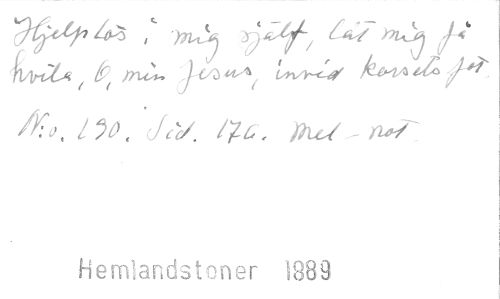 Hjelplös i mig sjelf, låt mig få
hvila, O, min Jesus, invid korsets fot.
N:o. 190. Sid. 176. Mel-not
Hemlandstoner 1889